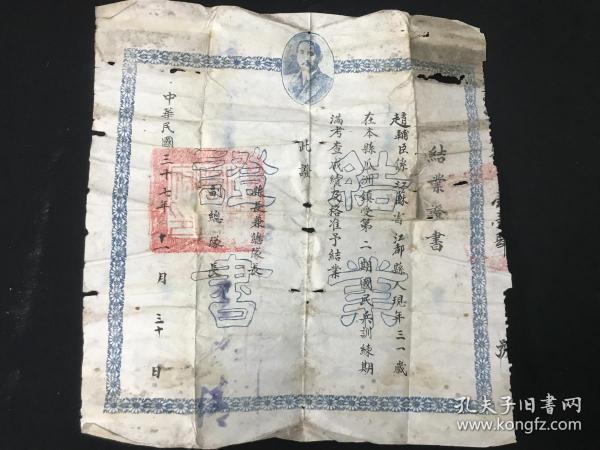 結業證書
趙輔臣係江蘇省江都縣人現年三一歲
在本縣瓜洲鎮受第二期國民兵訓練期
滿考查成績及格准予結業
此證
結業
證書
縣長兼總隊長
副總隊長
中華民國三十七年十一月三十日
號
孔夫子旧书网
www.kongfz.com